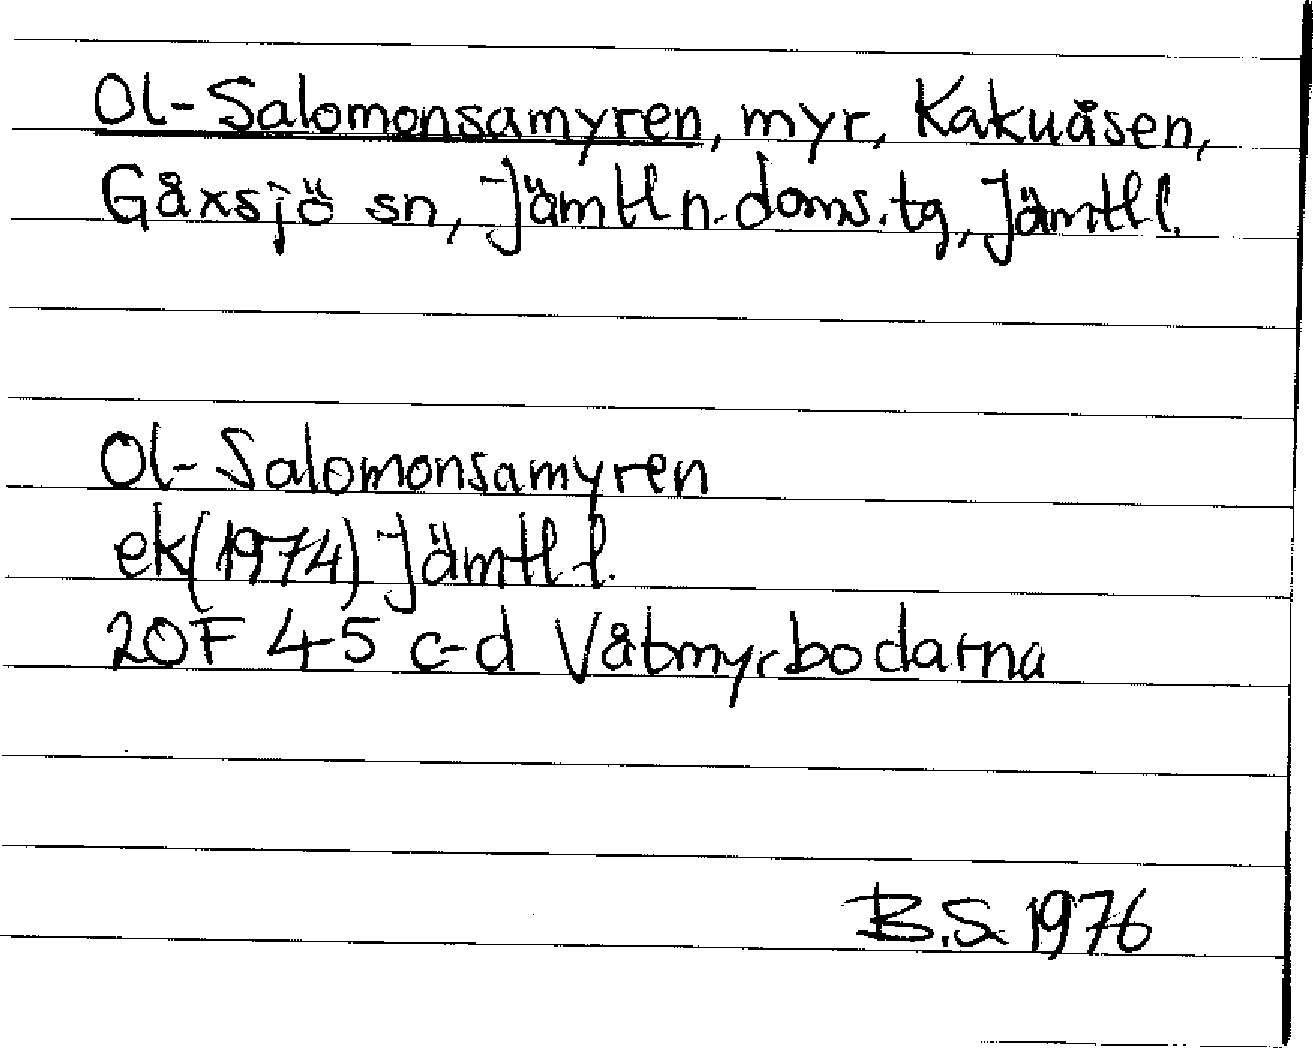 Ol-Salomonsamyren, myr, Kakuåsen,
Gåxsjö sn, Jämtl n. doms. tg, Jämtl l.
Ol-Salomonsamyren
ek(1974) Jämtl l.
20F 4-5 c-d Våtmyrbodarna
B.S. 1976